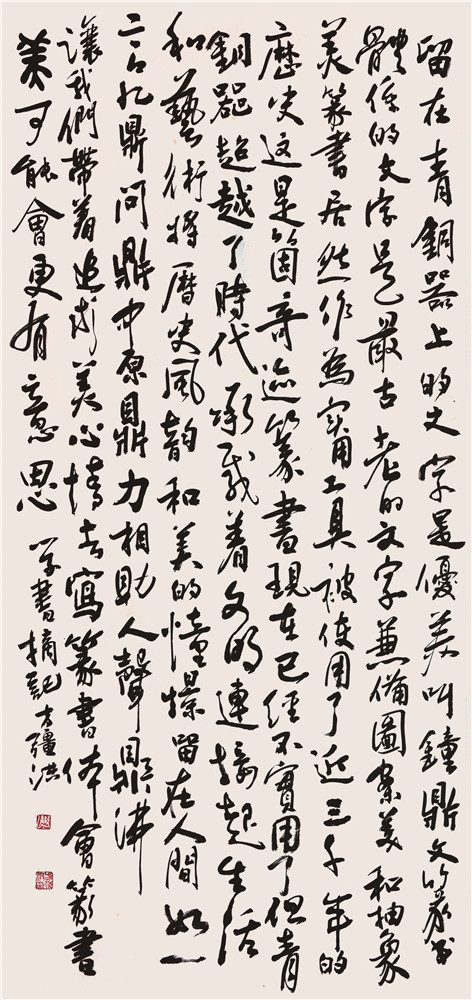 留在青銅器上的文字是優美叫鐘鼎文篆書
體係的文字是最古老的文字兼備圖案美和抽象
美篆書居然作為實用工具被使用了近三千年的
歷史這是箇奇迹篆書現在已經不實用了但青
銅器超越了時代承載着文明連接起生活
和藝術將曆史風韻和美的憧憬留在人間如一
言九鼎問鼎中原鼎力相助人聲鼎沸
讓我們帶着追求美心情去寫篆書体會篆書
美可能會更有意思
学書摘記